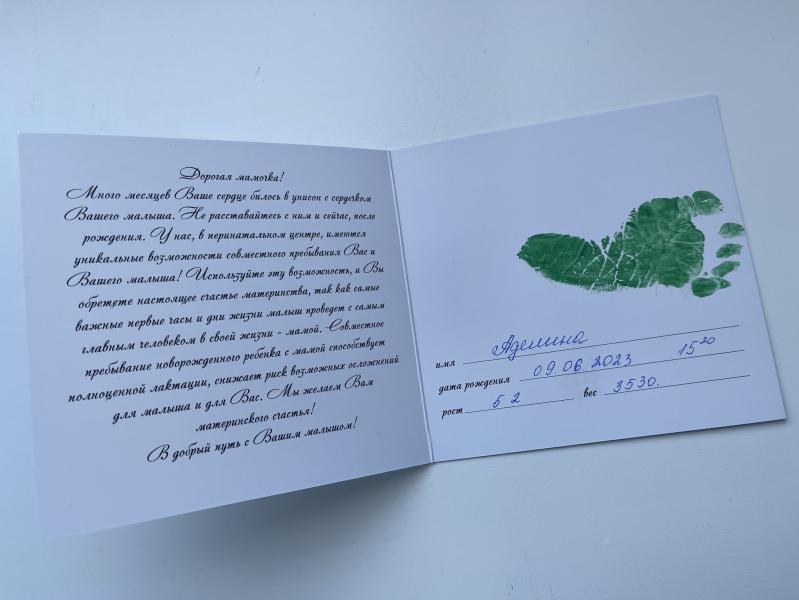 Дорогая мамочка!
Много месяцев Ваше сердце билось в унисон с сердечком
Вашего малыша. Не расставайтесь с ним и сейчас, после
рождения. У нас, в перинатальном центре, имеются
уникальные возможности совместного пребывания Вас и
Вашего малыша! Используйте эту возможность, и Вы
обретете настоящее счастье материнства, так как самые
важные первые часы и дни жизни малыш проведет с самым
главным человеком в своей жизни - мамой. Совместное
пребывание новорожденного ребенка с мамой способствует
полноценной лактации, снижает риск возможных осложнений
для малыша и для Вас. Мы желаем Вам
материнского счастья!
В добрый путь с Вашим малышом!
имя Аделина
дата рождения 09 06 2023 15 20
рост 52 вес 3530.